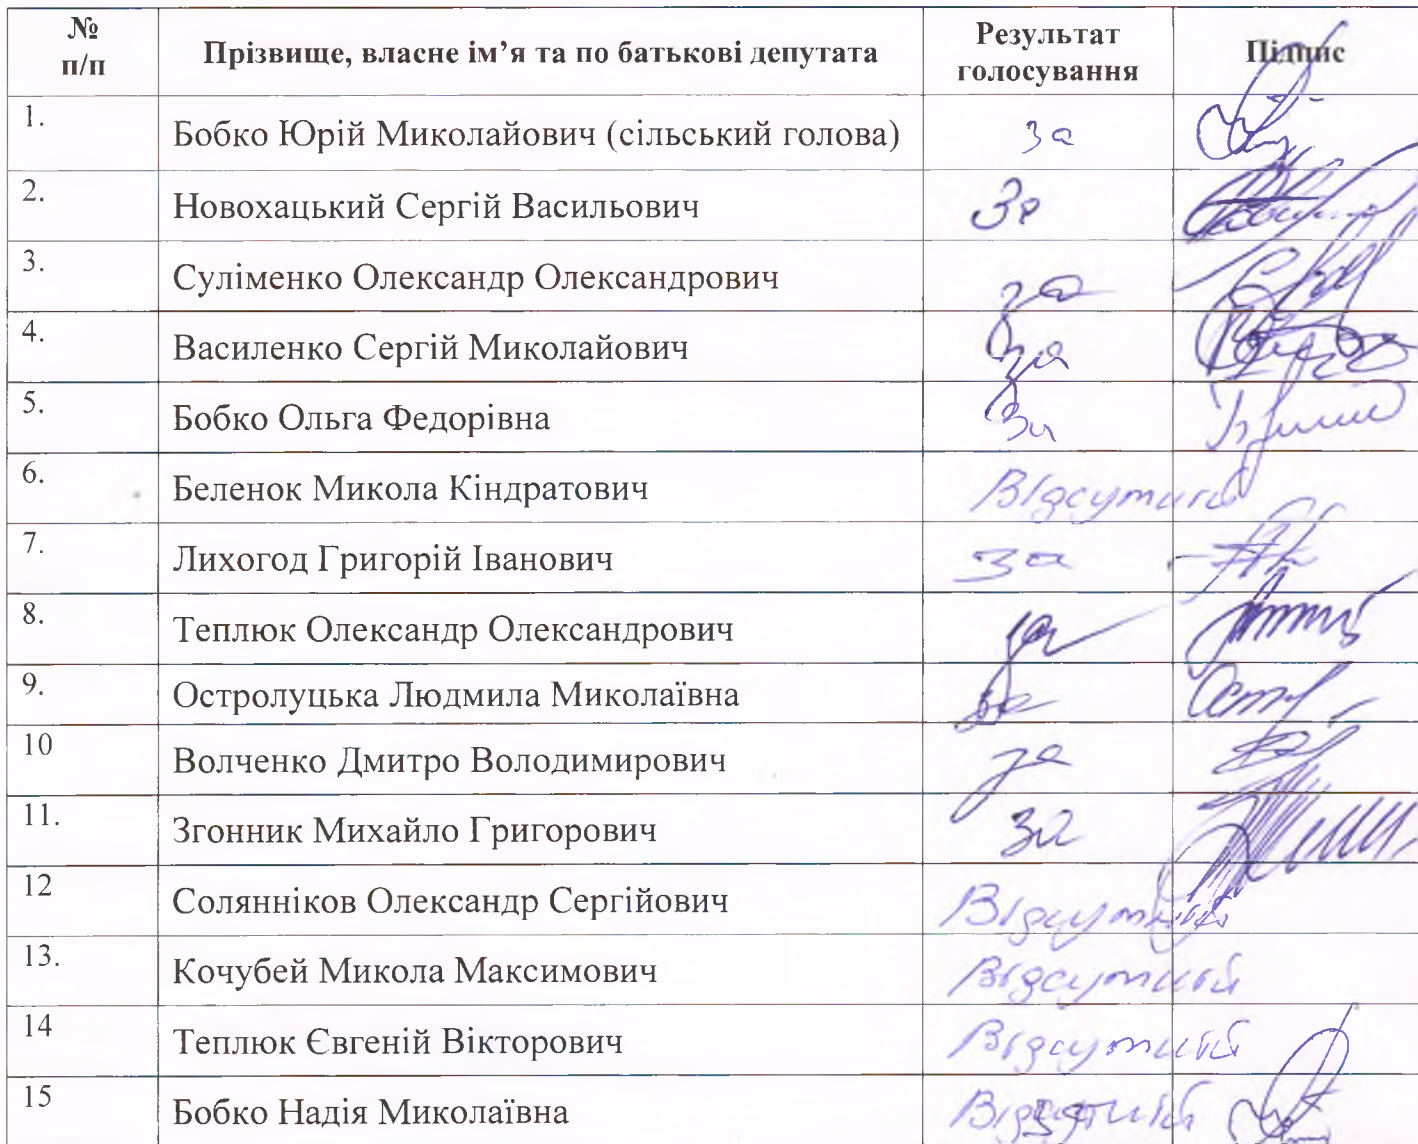 № п/п Прізвище, власне ім’я та по батькові депутата Результат голосування Підпис
1. Бобко Юрій Миколайович (сільський голова) за
2. Новохацький Сергій Васильович За
3. Суліменко Олександр Олександрович за
4. Василенко Сергій Миколайович за
5. Бобко Ольга Федорівна За
6. Беленок Микола Кіндратович Відсутній
7. Лихогод Григорій Іванович за
8. Теплюк Олександр Олександрович за
9. Остролуцька Людмила Миколаївна за
10 Волченко Дмитро Володимирович за
11. Згонник Михайло Григорович за
12 Солянніков Олександр Сергійович Відсутній
13. Кочубей Микола Максимович Відсутній
14 Теплюк Євгеній Вікторович Відсутній
15 Бобко Надія Миколаївна Відсутній